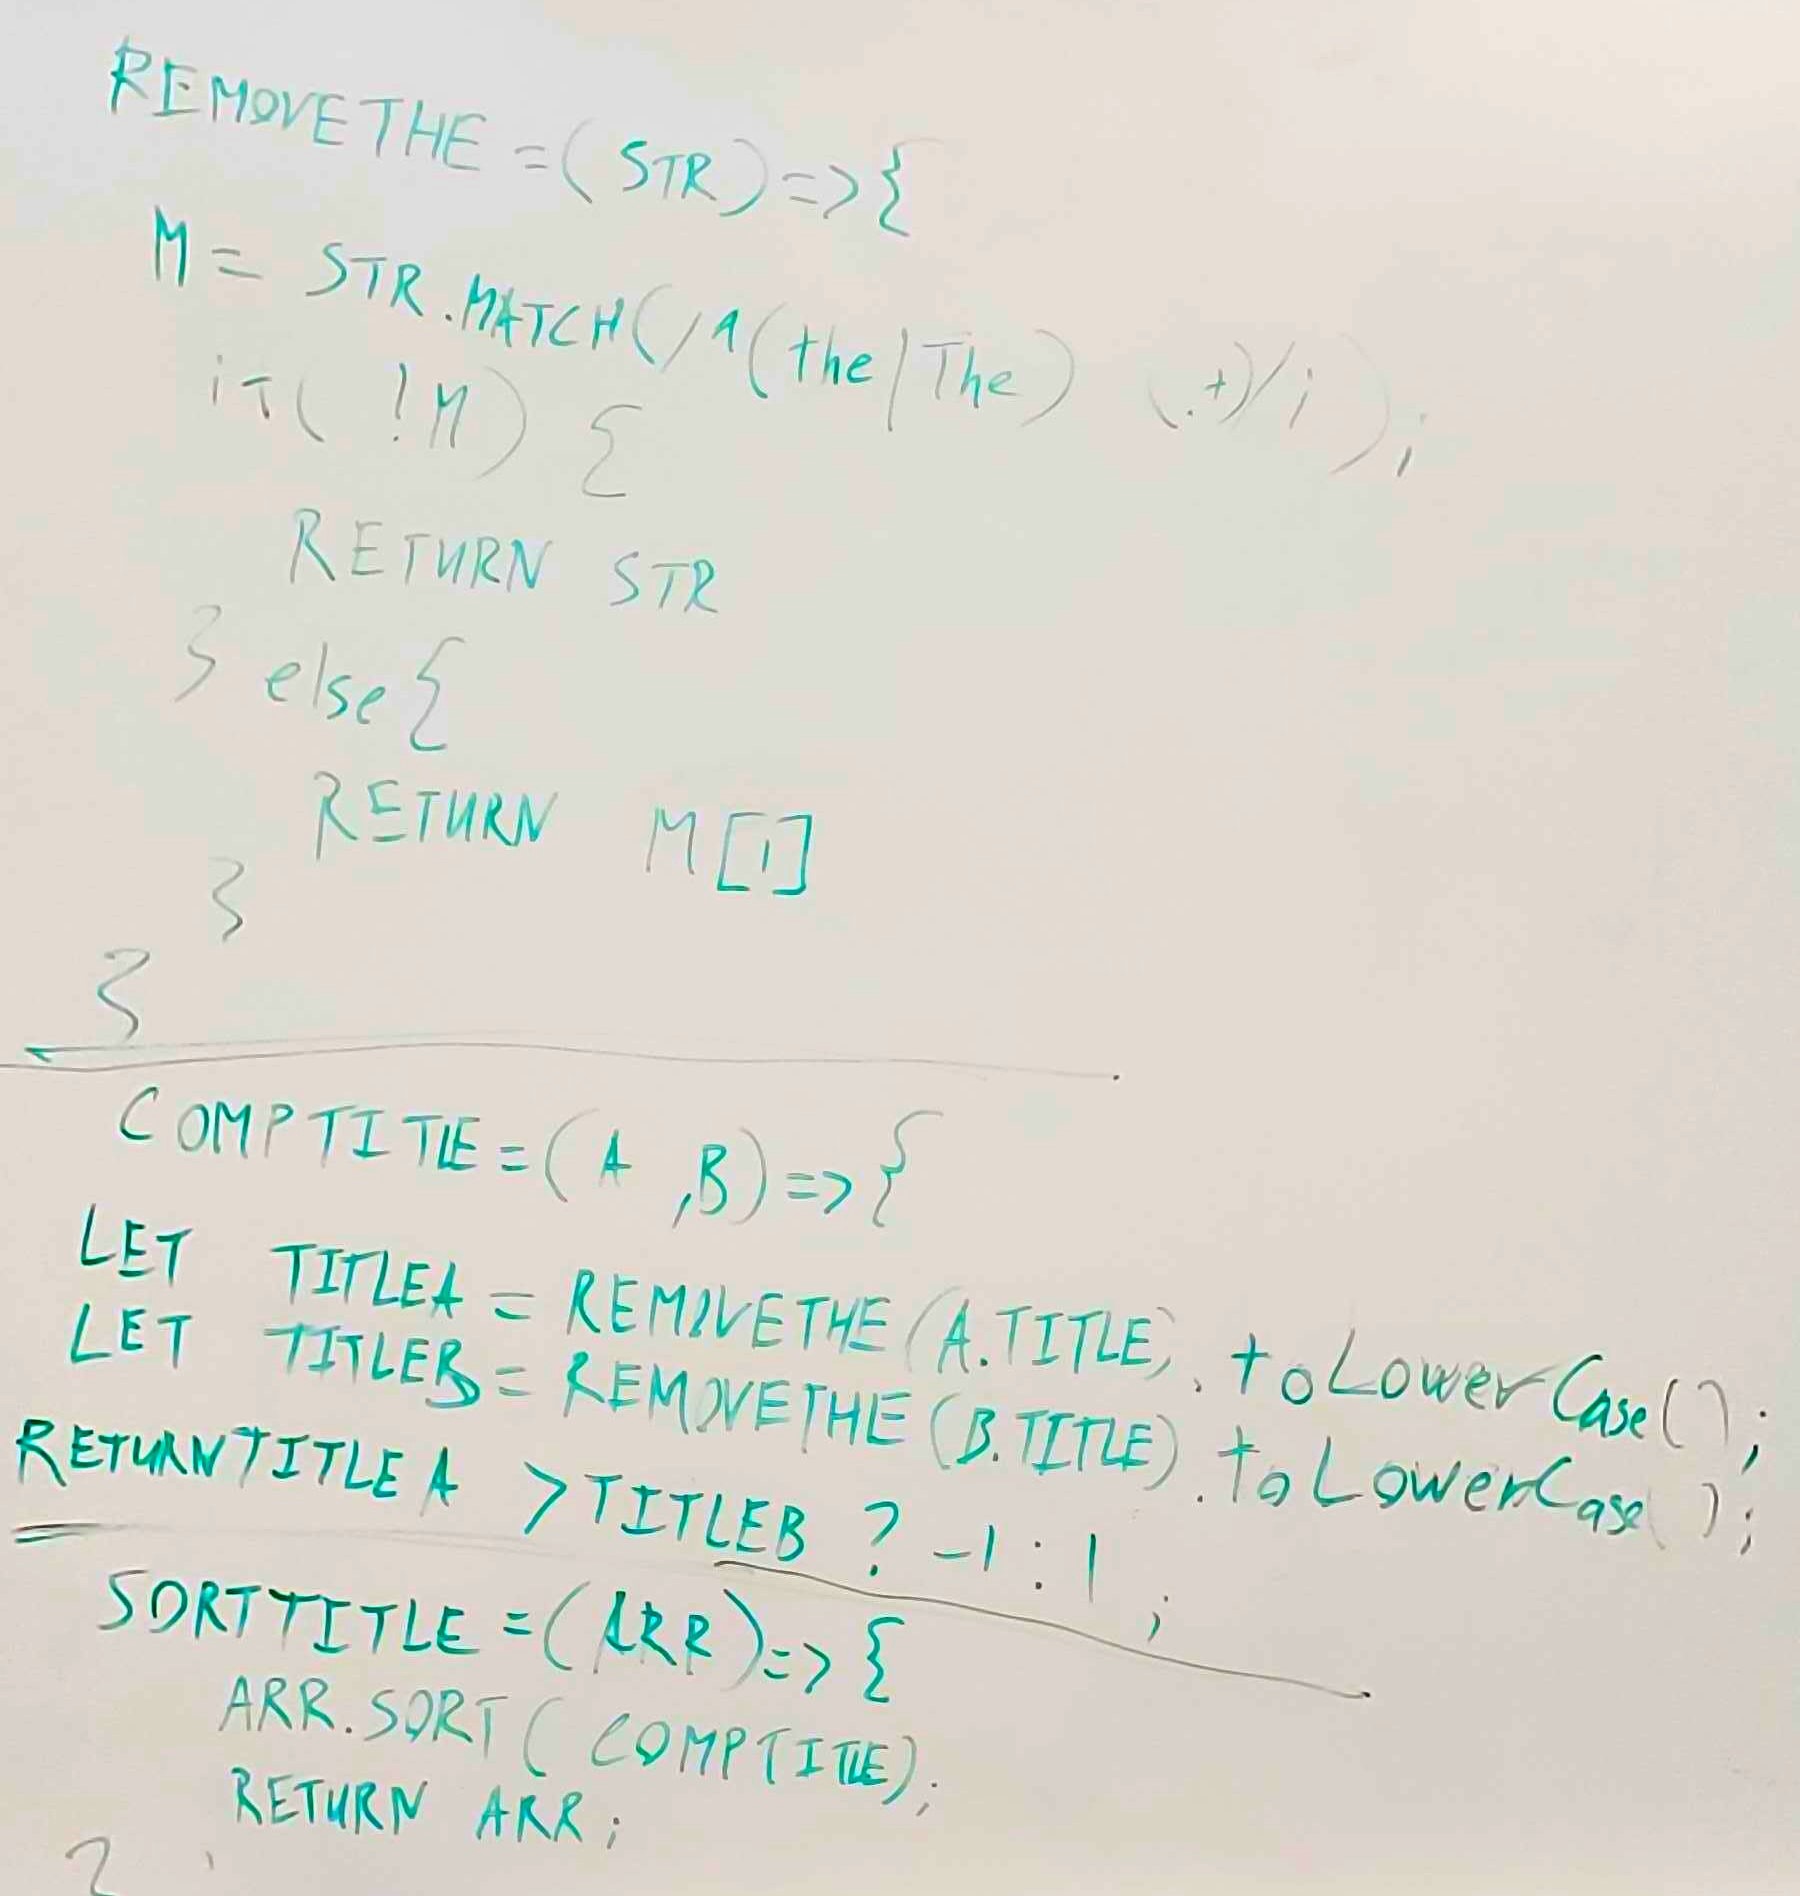 REMOVETHE =(STR)=>{
M= STR.MATCH(/^(the|The) (.+)/i);
if( !M) {
RETURN STR
} else{
RETURN M[1]
}
}
COMPTITLE=(A ,B)=>{
LET TITLEA = REMOVETHE(A.TITLE).toLowerCase();
LET TITLEB = REMOVETHE(B.TITLE).toLowerCase();
RETURN TITLEA >TITLEB ? -1 : 1 ;
SORTTITLE =(ARR)=>{
ARR.SORT(COMPTITLE);
RETURN ARR;
}